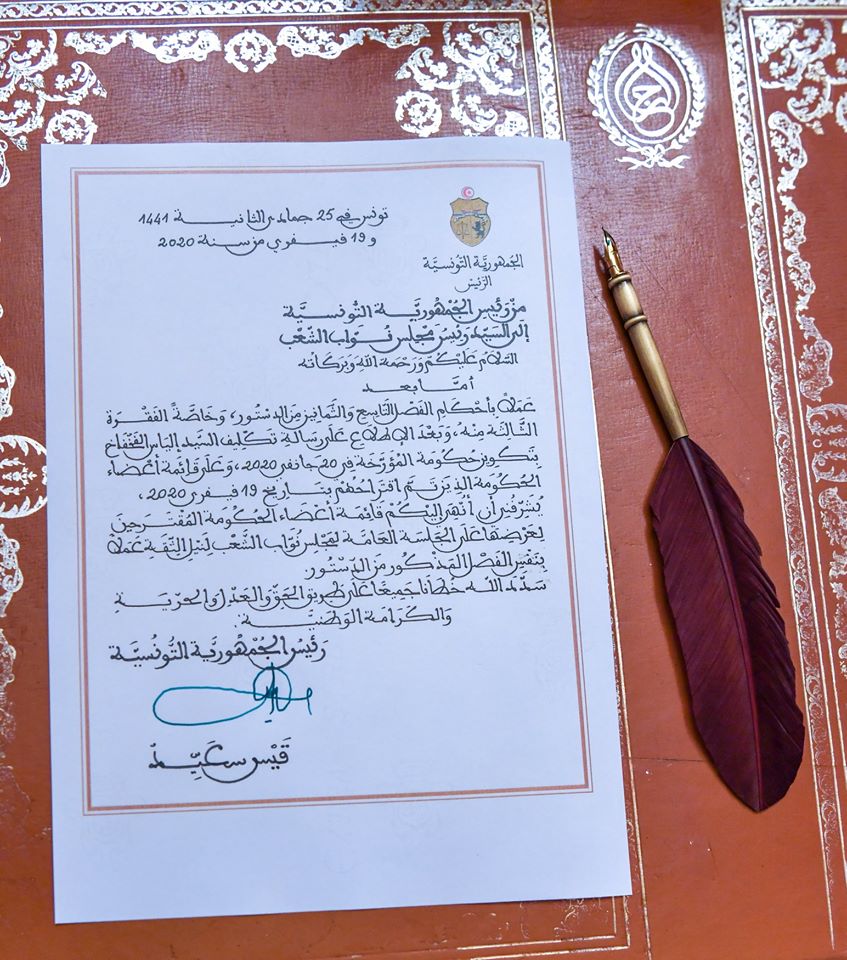 تونس في 25 جمادى الثانية 1441
و 19 فيفري من سنة 2020
الجمهورية التونسية
الرئيس
من رئيس الجُمْهُوريَّة التُّونسيَّة
إلى السيّد رئيس مجلس نُوّاب الشّعْب
السّلامُ عليكُم وَرَحْمَة الله وَبَرَكاته
أمّا بعد
عَمَلاً بأحْكام الفَصْل التّاسع والثّمانين من الدّستُور، وَخاصّةً الفَقْرة
الثّالثة منْهُ، وَبَعْدَ الإطلاع عَلَى رسالة تكليف السّيد إلياس الفَخْفَاخ
بتَكْوين حكومة المُؤرّخة في 20 جانفي 2020، وَعَلَى قائمة أعْضاء
الحُكومة الذينَ تمّ اقتراحُهُمْ بتاريخ 19 فيفري 2020،
يُشَرّفُني أن أُنْهيَ إليْكُمْ قائمة أعْضاء الحُكومة المُقْتَرحينَ
لعَرْضهَا عَلَى الجَلْسَة العَامّة لمَجْلس نُوّاب الشّعْب لنَيْل الثّقَة عَمَلاً
بنَفْس الفَصْل المَذْكُور منَ الدّسْتُور.
سَدّدَ اللّه خُطانا جميعًا عَلَى طَريق الحَقّ وَالعَدْل والحرّيّة
وَالكَرَامَة الوَطنيّة.
رَئيسُ الجُمْهُوريّة التُّونُسيَّة
قَيْس سَعَيّدْ